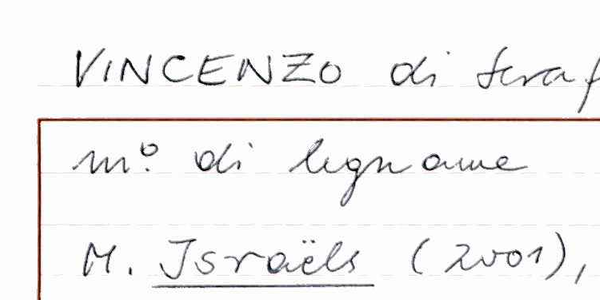 VINCENZO di Seraf
mº. di legname
M. Israëls (2001),